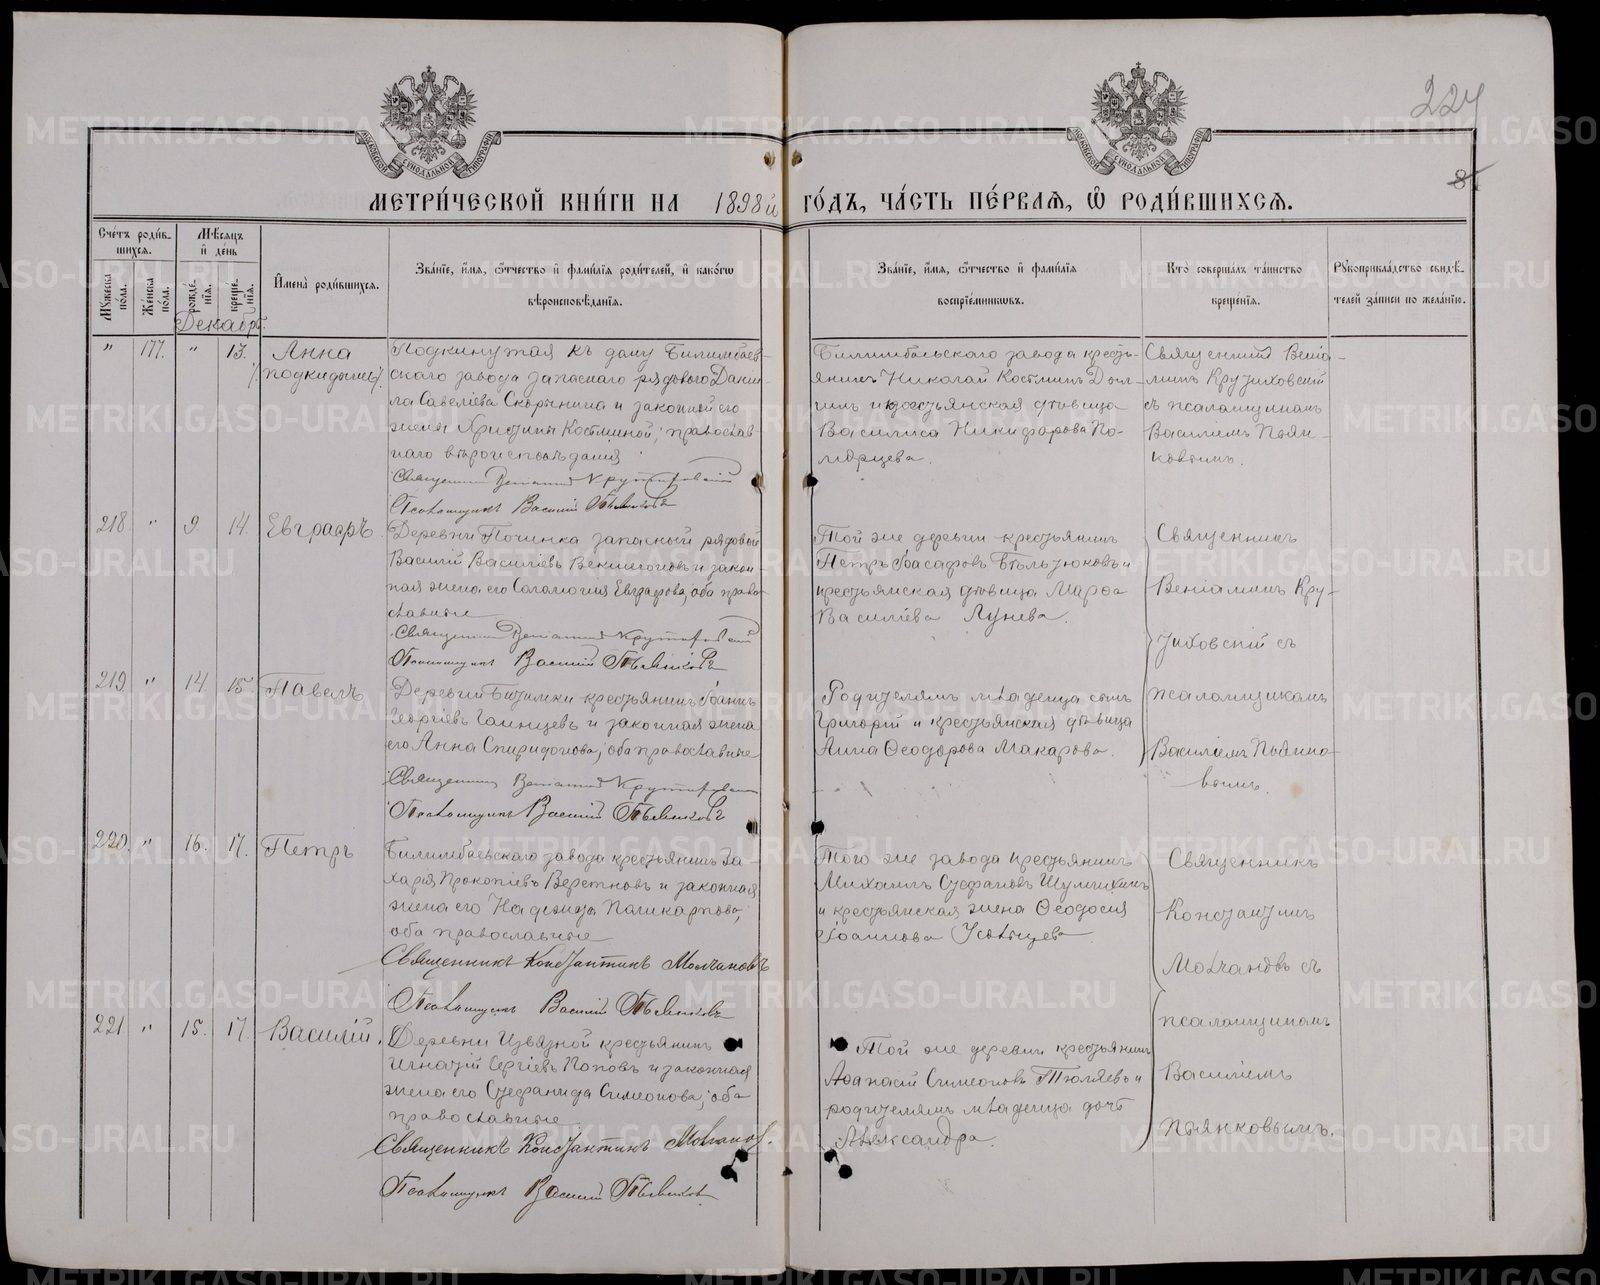 224
8
МЕТРИ́ЧЕСКОЙ КНИ́ГИ НА 1898й ГО́ДЪ, ЧА́СТЬ ПЕ́РВАѦ, Ѽ РОДИ́ВШИХСѦ.
Сче́тъ роди́в-
шихсѧ.
Мꙋжеска по́ла.
Же́нска по́ла.
Мѣ́сѧцъ и҆ де́нь
рожде́-
нїѧ.
креще́-
нїѧ.
Декабрь.
И҆мена̀ роди́вшихсѧ.
Зва́нїе, и҆́мѧ, ѻ҆́тчество и҆ фами́лїѧ роди́телей, и҆ како́гѡ
вѣроисповѣ́данїѧ.
Зва́нїе, и҆́мѧ, ѻ҆́тчество и҆ фами́лїѧ
воспрїе́мникѡвъ.
Кто̀ соверша́лъ та́инство
креще́нїѧ.
Рꙋкоприкла́дство свидѣ́-
телей за́писи по жела́нїю.
" 177. " 13. Анна
(подкидышъ)
Подкинутая къ дому Билимбаев-
скаго завода запаснаго рядового Дани-
ла Савелiева Скорынина и законной его
жены Христины Костминой, православ-
наго вѣроисповѣданiя
Священникъ Венiаминъ Крутиховскiй
Псаломщикъ Василiй Пьянковъ
Билимбаевскаго завода кресть-
янинъ Николай Костминъ
и крестьянская дѣвица
Василиса Никифорова По-
морцева.
Священникъ Венiа-
минъ Крутиховскiй
съ псаломщикомъ
Василiемъ Пьян-
ковымъ.
218. " 9. 14. Евграфъ
Деревни Починка запасный рядовый
Василiй Васильевъ и закон-
ная жена его Соломонiя Евграфова, оба право-
славные
Священникъ Венiаминъ Крутиховскiй
Псаломщикъ Василiй Пьянковъ
Той же деревни крестьянинъ
Петръ Iоасафовъ Бѣльтюковъ и
крестьянская дѣвица Марѳа
Василiева Лунева.
Священникъ
Венiаминъ Кру-
тиховскiй съ
псаломщикомъ
Василiемъ Пьянко-
вымъ.
219. " 14. 15. Павелъ
Деревни Битимки крестьянинъ Iоаннъ
Георгiевъ Галинцевъ и законная жена
его Анна Спиридонова, оба православные
Священникъ Венiаминъ Крутиховскiй
Псаломщикъ Василiй Пьянковъ
Родителямъ младенца сынъ
Григорiй и крестьянская дѣвица
Анна Ѳеодорова Макарова.
220. " 16. 17. Петръ
Билимбаевскаго завода крестьянинъ За-
харiя Прокопiевъ Веретновъ и законная
жена его Надежда Панкратова,
оба православные
Священникъ Константинъ Молчановъ
Псаломщикъ Василiй Пьянковъ
Того же завода крестьянинъ
Михаилъ Стефановъ Шумихинъ
и крестьянская жена Ѳеодосiя
Iоаннова Усольцева
Священникъ
Константинъ
Молчановъ съ
псаломщикомъ
Василiемъ
Пьянковымъ.
221 " 15. 17. Василiй.
Деревни Извязной крестьянинъ
Игнатiй Сергiевъ Поповъ и законная
жена его Стефанида Симеонова, оба
православные
Священникъ Константинъ Молчановъ.
Псаломщикъ Василiй Пьянковъ
Той же деревни крестьянинъ
Аѳанасiй Симеоновъ Тюляевъ и
родителямъ младенца дочь
Александра.